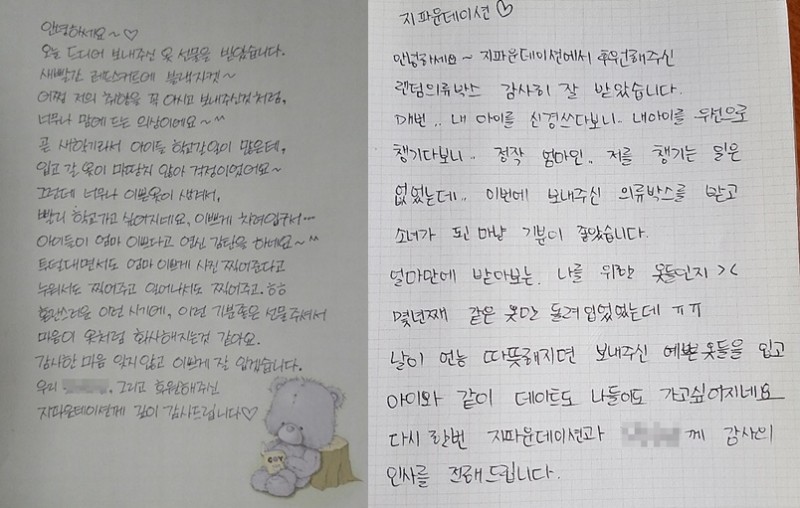 안녕하세요~♡
오늘 드디어 보내주신 옷 선물을 받았습니다.
새빨간 레드스커트에 블랙자켓~
어쩜 저의 취향을 꼭 아시고 보내주신것처럼,
너무나 맘에 드는 의상이에요~^^
곧 새학기라서 아이들 학교갈일이 많은데,
입고 갈 옷이 마땅치 않아 걱정이었어요~
그런데 너무나 이쁜옷이 생겨서,
빨리 학교가고 싶어지네요, 이쁘게 차려입구서…
아이들이 엄마 이쁘다고 연신 감탄을 하네요~^^
투덜대면서도 엄마 이쁘게 사진 찍어준다고
누워서도 찍어주고 일어나서도 찍어주고.ㅎㅎ
혼란스러운 이런 시기에, 이런 기분좋은 선물주셔서
마음이 옷처럼 화사해지는것 같아요.
감사한 마음 잊지않고 이쁘게 잘 입겠습니다.
우리 , 그리고 후원해주신
지파운데이션께 깊이 감사드립니다♡
지파운데이션♡
안녕하세요~ 지파운데이션에서 후원해주신
랜덤의류박스 감사히 잘 받았습니다.
매번.. 내 아이를 신경쓰다보니.. 내아이를 우선으로
챙기다보니.. 정작 엄마인.. 저를 챙기는 일은
없었는데.. 이번에 보내주신 의류박스를 받고
소녀가 된 마냥 기분이 좋았습니다.
얼마만에 받아보는. 나를 위한 옷들인지 ><
몇년째 같은 옷만 돌려입었었는데 ㅠㅠ
날이 언능 따뜻해지면 보내주신 예쁜옷들을 입고
아이와 같이 데이트도 나들이도 가고싶어지네요
다시 한번 지파운데이션과 께 감사의
인사를 전해드립니다.